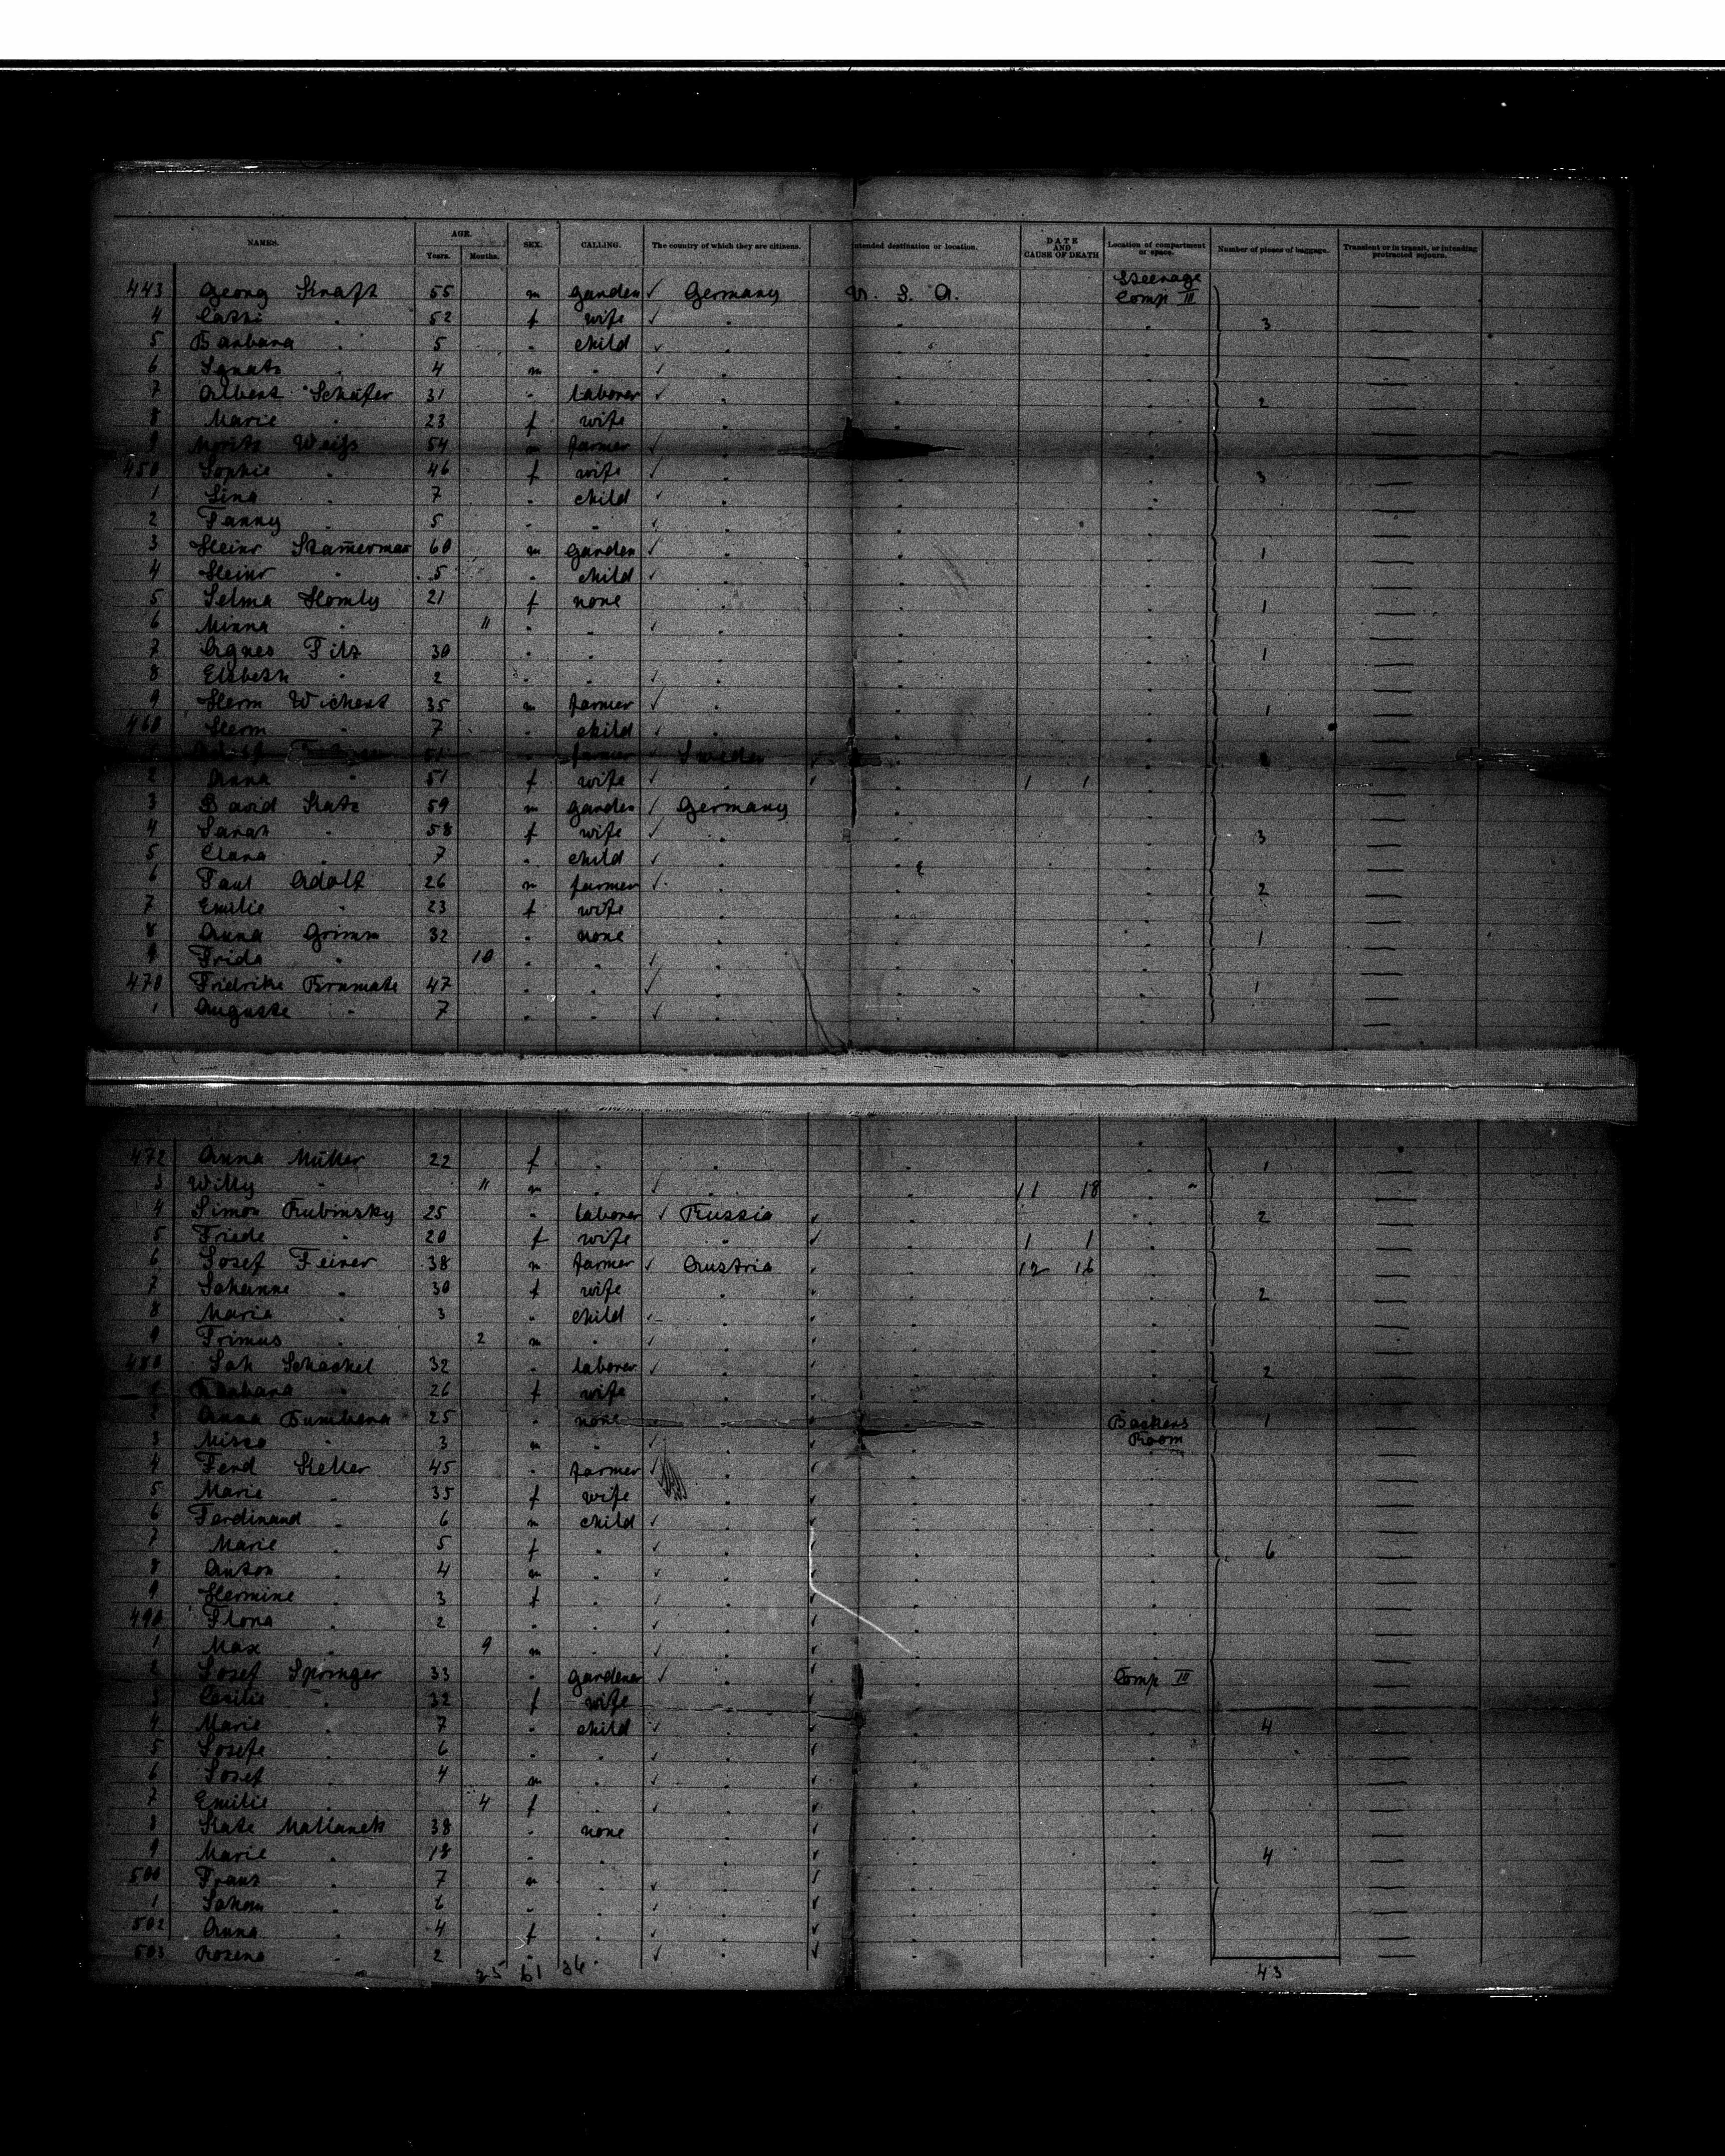 NAMES. AGE. Years. Months. SEX. CALLING. The country of which they are citizens. Intended destination or location. DATE AND CAUSE OF DEATH Location of compartment or space. Number of pieces of baggage. Transient or in transit, or intending protracted sojourn.
443 Georg Kraft 55 m garden ✓ Germany U. S. A. Steerage Comp III
4 Cathi " 52 f wife ✓ " " " 3 —
5 Barbara " 5 " child ✓ " " " —
6 Ignatz " 4 m " ✓ " " " —
7 Albert Schäfer 31 " laborer ✓ " " " 2 —
8 Marie " 23 f wife " " " —
9 Moritz Weiss 54 m farmer ✓ " " " —
450 Sophie " 46 f wife ✓ " " " 3 —
1 Lina " 7 " child ✓ " " " —
2 Fanny " 5 " " ✓ " " " —
3 Heinr 60 m garden ✓ " " " 1 —
4 Heinr " 5 " child ✓ " " " —
5 Selma 21 f none " " " 1 —
6 Minna " 11 " " ✓ " " " —
7 Agnes 30 " " " " " 1 —
8 Elsbeth " 2 " " ✓ " " " —
9 Herm Wichert 35 m farmer ✓ " " " 1 —
460 Herm " 7 " child ✓ " " " —
Sweden
2 Anna " 51 f wife ✓ " ✓ " 1 1 " —
3 David Katz 59 m garden ✓ Germany " " —
4 Sarah " 58 f wife ✓ " " " 3 —
5 Clara " 7 " child ✓ " " " —
6 Paul Adolf 26 m farmer ✓ " " " 2 —
7 Emilie " 23 f wife " " " —
8 Anna Grimm 32 " none " " " 1 —
9 Frida " 10 " " ✓ " " " —
470 Fridrike 47 " " ✓ " " " 1 —
1 Auguste " 7 " " ✓ " " " —
472 Anna Müller 22 f " " " " 1 —
3 Willy " 11 m " ✓ " " 11 18 " —
4 Simon Rubinsky 25 " laborer ✓ Russia ✓ " " 2 —
5 Friede " 20 f wife " ✓ " 1 1 " —
6 Josef Feiner 38 m farmer ✓ Austria ✓ " 12 16 " —
7 Johanne " 30 f wife " ✓ " " 2 —
8 Marie " 3 " child ✓ " ✓ " " —
9 Primus " 2 m " ✓ " ✓ " " —
480 Joh Schackel 32 " laborer ✓ " ✓ " " 2 —
1 Barbara " 26 f wife " ✓ " " —
2 Anna 25 " none " ✓ " Backers Room 1 —
3 " 3 m " ✓ " ✓ " —
4 Ferd Keller 45 " farmer ✓ " ✓ " " —
5 Marie " 35 f wife " ✓ " " —
6 Ferdinand " 6 m child ✓ " ✓ " " —
7 Marie " 5 f " ✓ " ✓ " " 6 —
8 Anton " 4 m " ✓ " ✓ " " —
9 Hermine " 3 f " ✓ " ✓ " " —
490 Flora " 2 " " ✓ " ✓ " " —
1 Max " 9 m " ✓ " ✓ " " —
2 Josef Springer 33 " gardener ✓ " ✓ " Comp III —
3 Cecilie " 32 f wife " ✓ " " —
4 Marie " 7 " child ✓ " ✓ " " 4 —
5 Josefe " 6 " " ✓ " ✓ " " —
6 Josef " 4 m " ✓ " ✓ " " —
7 Emilie " 4 f " ✓ " ✓ " " —
8 Kate Mallanek 38 " none " ✓ " " —
9 Marie " 18 " " " ✓ " " 4 —
500 Franz " 7 m " ✓ " ✓ " " —
1 Johan " 6 " " ✓ " ✓ " " —
502 Anna " 4 f " ✓ " ✓ " " —
503 Rozena " 2 " ✓ " ✓ " " —
61 43